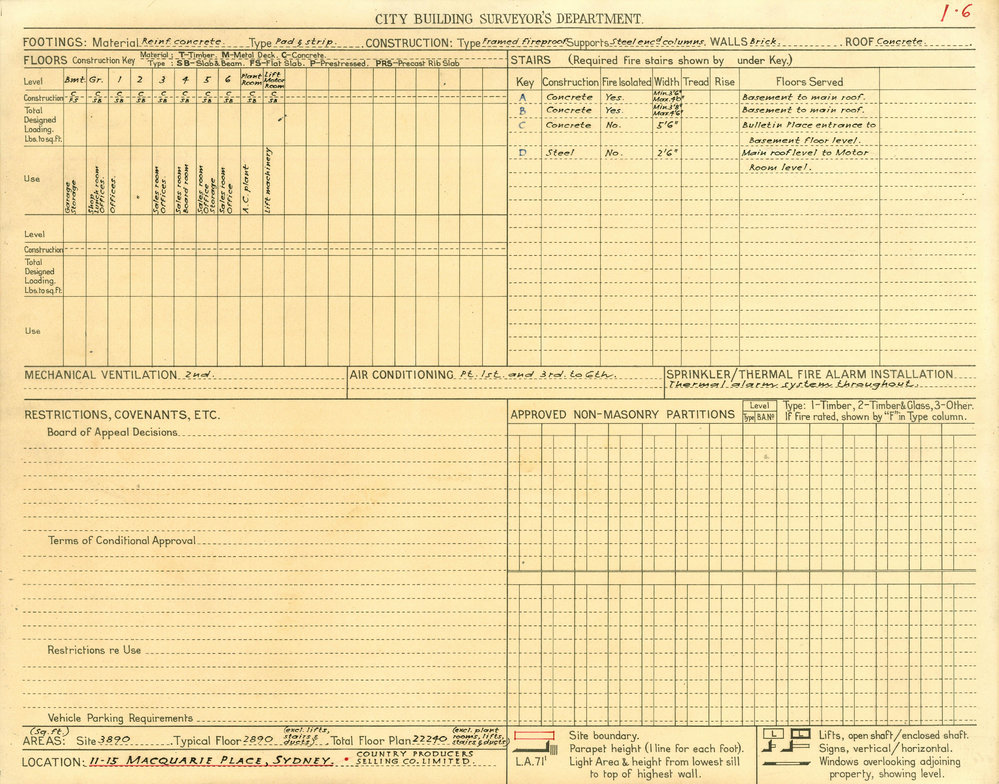 CITY BUILDING SURVEYOR'S DEPARTMENT.
1·6
FOOTINGS: Material Reinf. concrete. Type Pad & strip. CONSTRUCTION: Type Framed fireproof Supports Steel enc^d columns. WALLS Brick. ROOF Concrete.
FLOORS Construction Key Material: T-Timber. M-Metal Deck. C-Concrete.
Type: SB-Slab & Beam. FS-Flat Slab. P-Prestressed. PRS-Precast Rib Slab
Level Bmt. Gr. 1 2 3 4 5 6 Plant Room Lift Motor Room
Construction C/FS C/SB C/SB C/SB C/SB C/SB C/SB C/SB C/SB C/SB
Total
Designed
Loading.
Lbs. to sq. ft.
Use Garage Storage Shop Lunch room Offices. Offices. " Sales room Offices. Sales room Board room Sales room Office Storage Sales room Office A.C. plant Lift machinery
Level
Construction
Total
Designed
Loading.
Lbs. to sq. ft.
Use
STAIRS (Required Fire stairs shown by under Key.)
Key Construction Fire Isolated Width Tread Rise Floors Served
A Concrete Yes. Min. 3'6" Max. 4'0" Basement to main roof.
B Concrete Yes. Min. 3'8" Max. 4'6" Basement to main roof.
C Concrete No. 5'6" Bulletin Place entrance to
Basement floor level.
D Steel No. 2'6" Main roof level to Motor
Room level.
MECHANICAL VENTILATION 2nd.
AIR CONDITIONING Pt. 1st. and 3rd. to 6th.
SPRINKLER/THERMAL FIRE ALARM INSTALLATION
Thermal alarm system throughout.
RESTRICTIONS, COVENANTS, ETC.
Board of Appeal Decisions
Terms of Conditional Approval
Restrictions re Use
Vehicle Parking Requirements
APPROVED NON-MASONRY PARTITIONS
Level
Type B.A.Nº
Type: 1-Timber, 2-Timber & Glass, 3-Other.
If fire rated, shown by "F" in Type column.
(Sq. ft.)
AREAS: Site 3890 Typical Floor 2890 (excl. lifts, stairs & ducts) Total Floor Plan 22240 (excl. plant rooms, lifts, stairs & ducts)
LOCATION: 11-15 MACQUARIE PLACE, SYDNEY. • COUNTRY PRODUCERS SELLING CO. LIMITED.
Site boundary.
Parapet height (1 line for each foot).
L.A. 71' Light Area & height from lowest sill
to top of highest wall.
L Lifts, open shaft/enclosed shaft.
Signs, vertical/horizontal.
Windows overlooking adjoining
property, showing level.